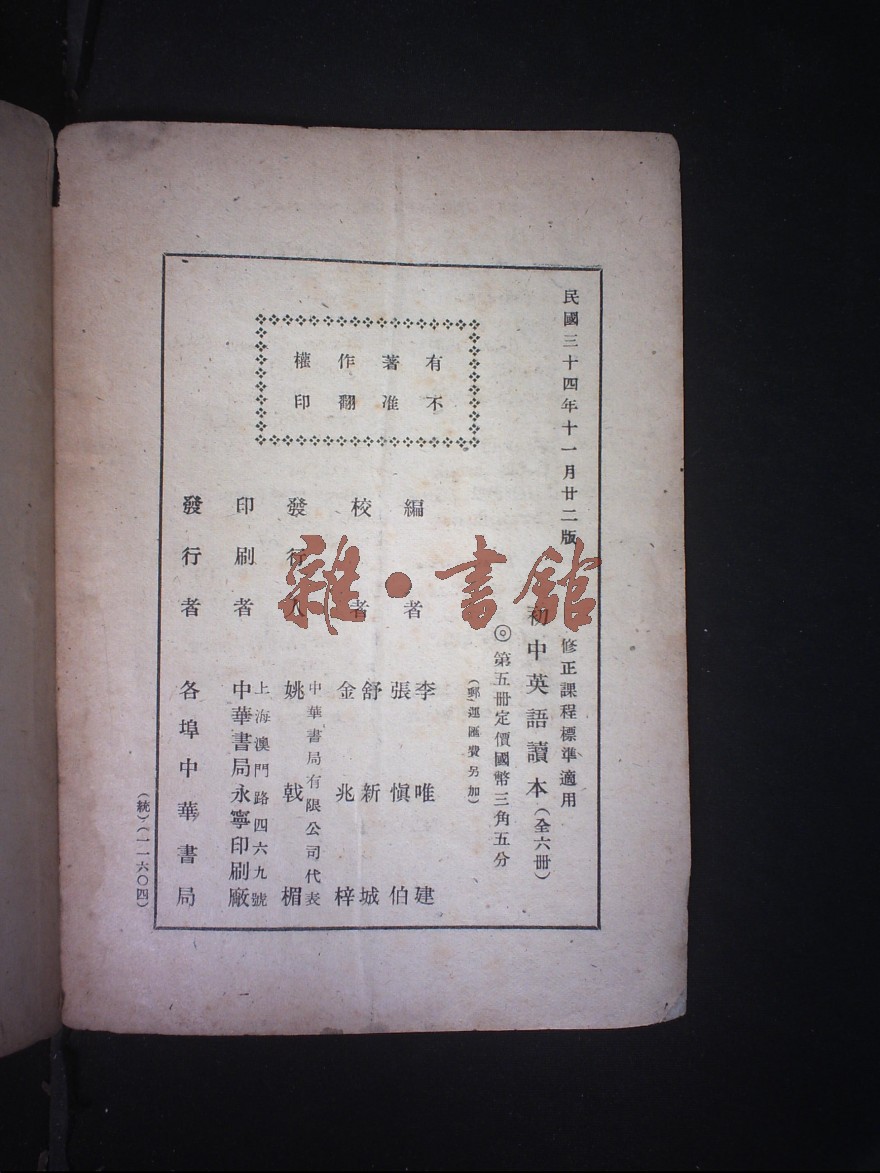 民國三十四年十一月廿二版
修正課程標準適用
初中英語讀本(全六冊)
◎第五冊定價國幣三角五分
(郵運匯費另加)
有著作權
不准翻印
編者
李唯建
張愼伯
校者
舒新城
金兆梓
發行人
中華書局有限公司代表
姚戟楣
印刷者
上海澳門路四六九號
中華書局永寧印刷廠
發行者
各埠中華書局
(統)(一一六〇四)
雜·書館